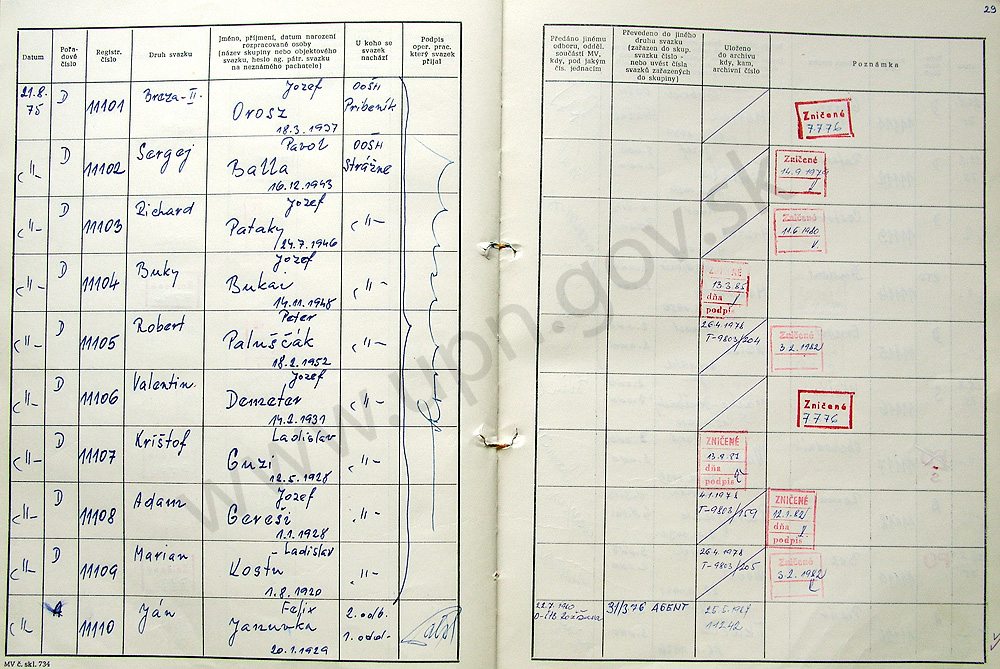 29
Datum
Pořa-
dové
číslo
Registr.
číslo
Druh svazku
Jméno, příjmení, datum narození
rozpracované osoby
(název skupiny nebo objektového
svazku, heslo ag. pátr. svazku
na neznámého pachatele)
U koho se
svazek
nachází
Podpis
oper. prac.
který svazek
přijal
Předáno jinému
odboru, odděl.
součásti MV,
kdy, pod jakým
čís. jednacím
Převedeno do jiného
druhu svazku
(zařazen do skup.
svazku číslo -
nebo uvést čísla
svazků zařazených
do skupiny)
Uloženo
do archivu
kdy, kam,
archivní číslo
Poznámka
21.8.
75
D
11101
Breza-II.
Jozef
Orosz
18.3.1937
OOŠH
Pribeník
Zničené
7776
-"-
D
11102
Sergej
Pavol
Balla
16.12.1943
OOŠH
Strážne
Zničené
14.9.1979
-"-
D
11103
Richard
Jozef
Pataky
24.7.1946
-"-
Zničené
11.6.1980
-"-
D
11104
Buky
Jozef
Bukai
14.11.1948
-"-
ZNIČENÉ
13.3.85
dňa
podpis
-"-
D
11105
Robert
Peter
Paluščák
18.2.1952
-"-
26.4.1978
T-9803/204
Zničené
3.2.1982
-"-
D
11106
Valentin
Jozef
Demeter
14.2.1931
-"-
Zničené
7776
-"-
D
11107
Krištof
Ladislav
Guzi
12.5.1928
-"-
ZNIČENÉ
dňa
podpis
-"-
D
11108
Adam
Jozef
Gereši
1.1.1928
-"-
4.1.1978
T-9803/159
ZNIČENÉ
12.1.82
dňa
podpis
-"-
D
11109
Marian
Ladislav
Kostu
1.8.1920
-"-
26.4.1978
T-9803/205
Zničené
3.2.1982
-"-
A
11110
Ján
Felix
Janurka
20.1.1929
2. odb.
1. odd.
31/376 AGENT
11242
MV č. skl. 734
www.upn.gov.sk